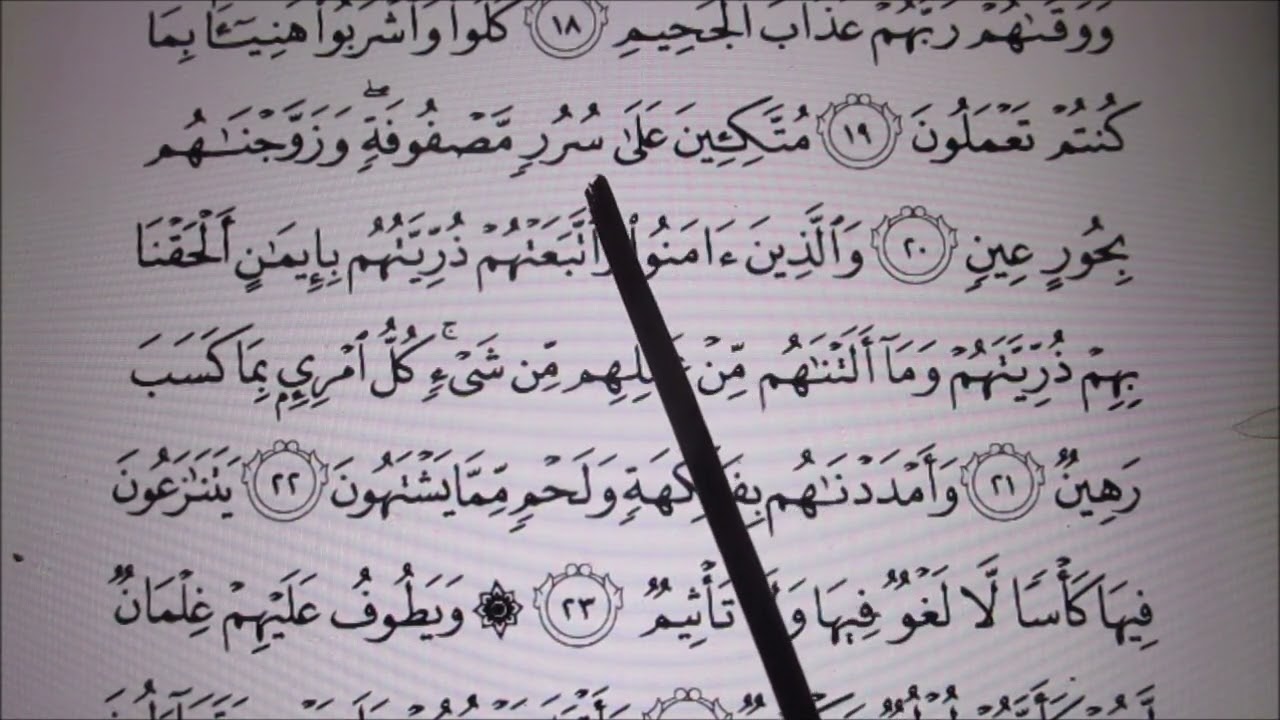 وَوَقَىٰهُمْ رَبُّهُمْ عَذَابَ ٱلْجَحِيمِ ١٨ كُلُوا۟ وَٱشْرَبُوا۟ هَنِيٓـًٔۢا بِمَا
كُنتُمْ تَعْمَلُونَ ١٩ مُتَّكِـِٔينَ عَلَىٰ سُرُرٍ مَّصْفُوفَةٍ ۖ وَزَوَّجْنَـٰهُم
بِحُورٍ عِينٍ ٢٠ وَٱلَّذِينَ ءَامَنُوا۟ وَٱتَّبَعَتْهُمْ ذُرِّيَّتُهُم بِإِيمَـٰنٍ أَلْحَقْنَا
بِهِمْ ذُرِّيَّتَهُمْ وَمَآ أَلَتْنَـٰهُم مِّنْ عَمَلِهِم مِّن شَىْءٍ ۚ كُلُّ ٱمْرِئٍۭ بِمَا كَسَبَ
رَهِينٌ ٢١ وَأَمْدَدْنَـٰهُم بِفَـٰكِهَةٍ وَلَحْمٍ مِّمَّا يَشْتَهُونَ ٢٢ يَتَنَـٰزَعُونَ
فِيهَا كَأْسًا لَّا لَغْوٌ فِيهَا وَلَا تَأْثِيمٌ ٢٣ ۞ وَيَطُوفُ عَلَيْهِمْ غِلْمَانٌ